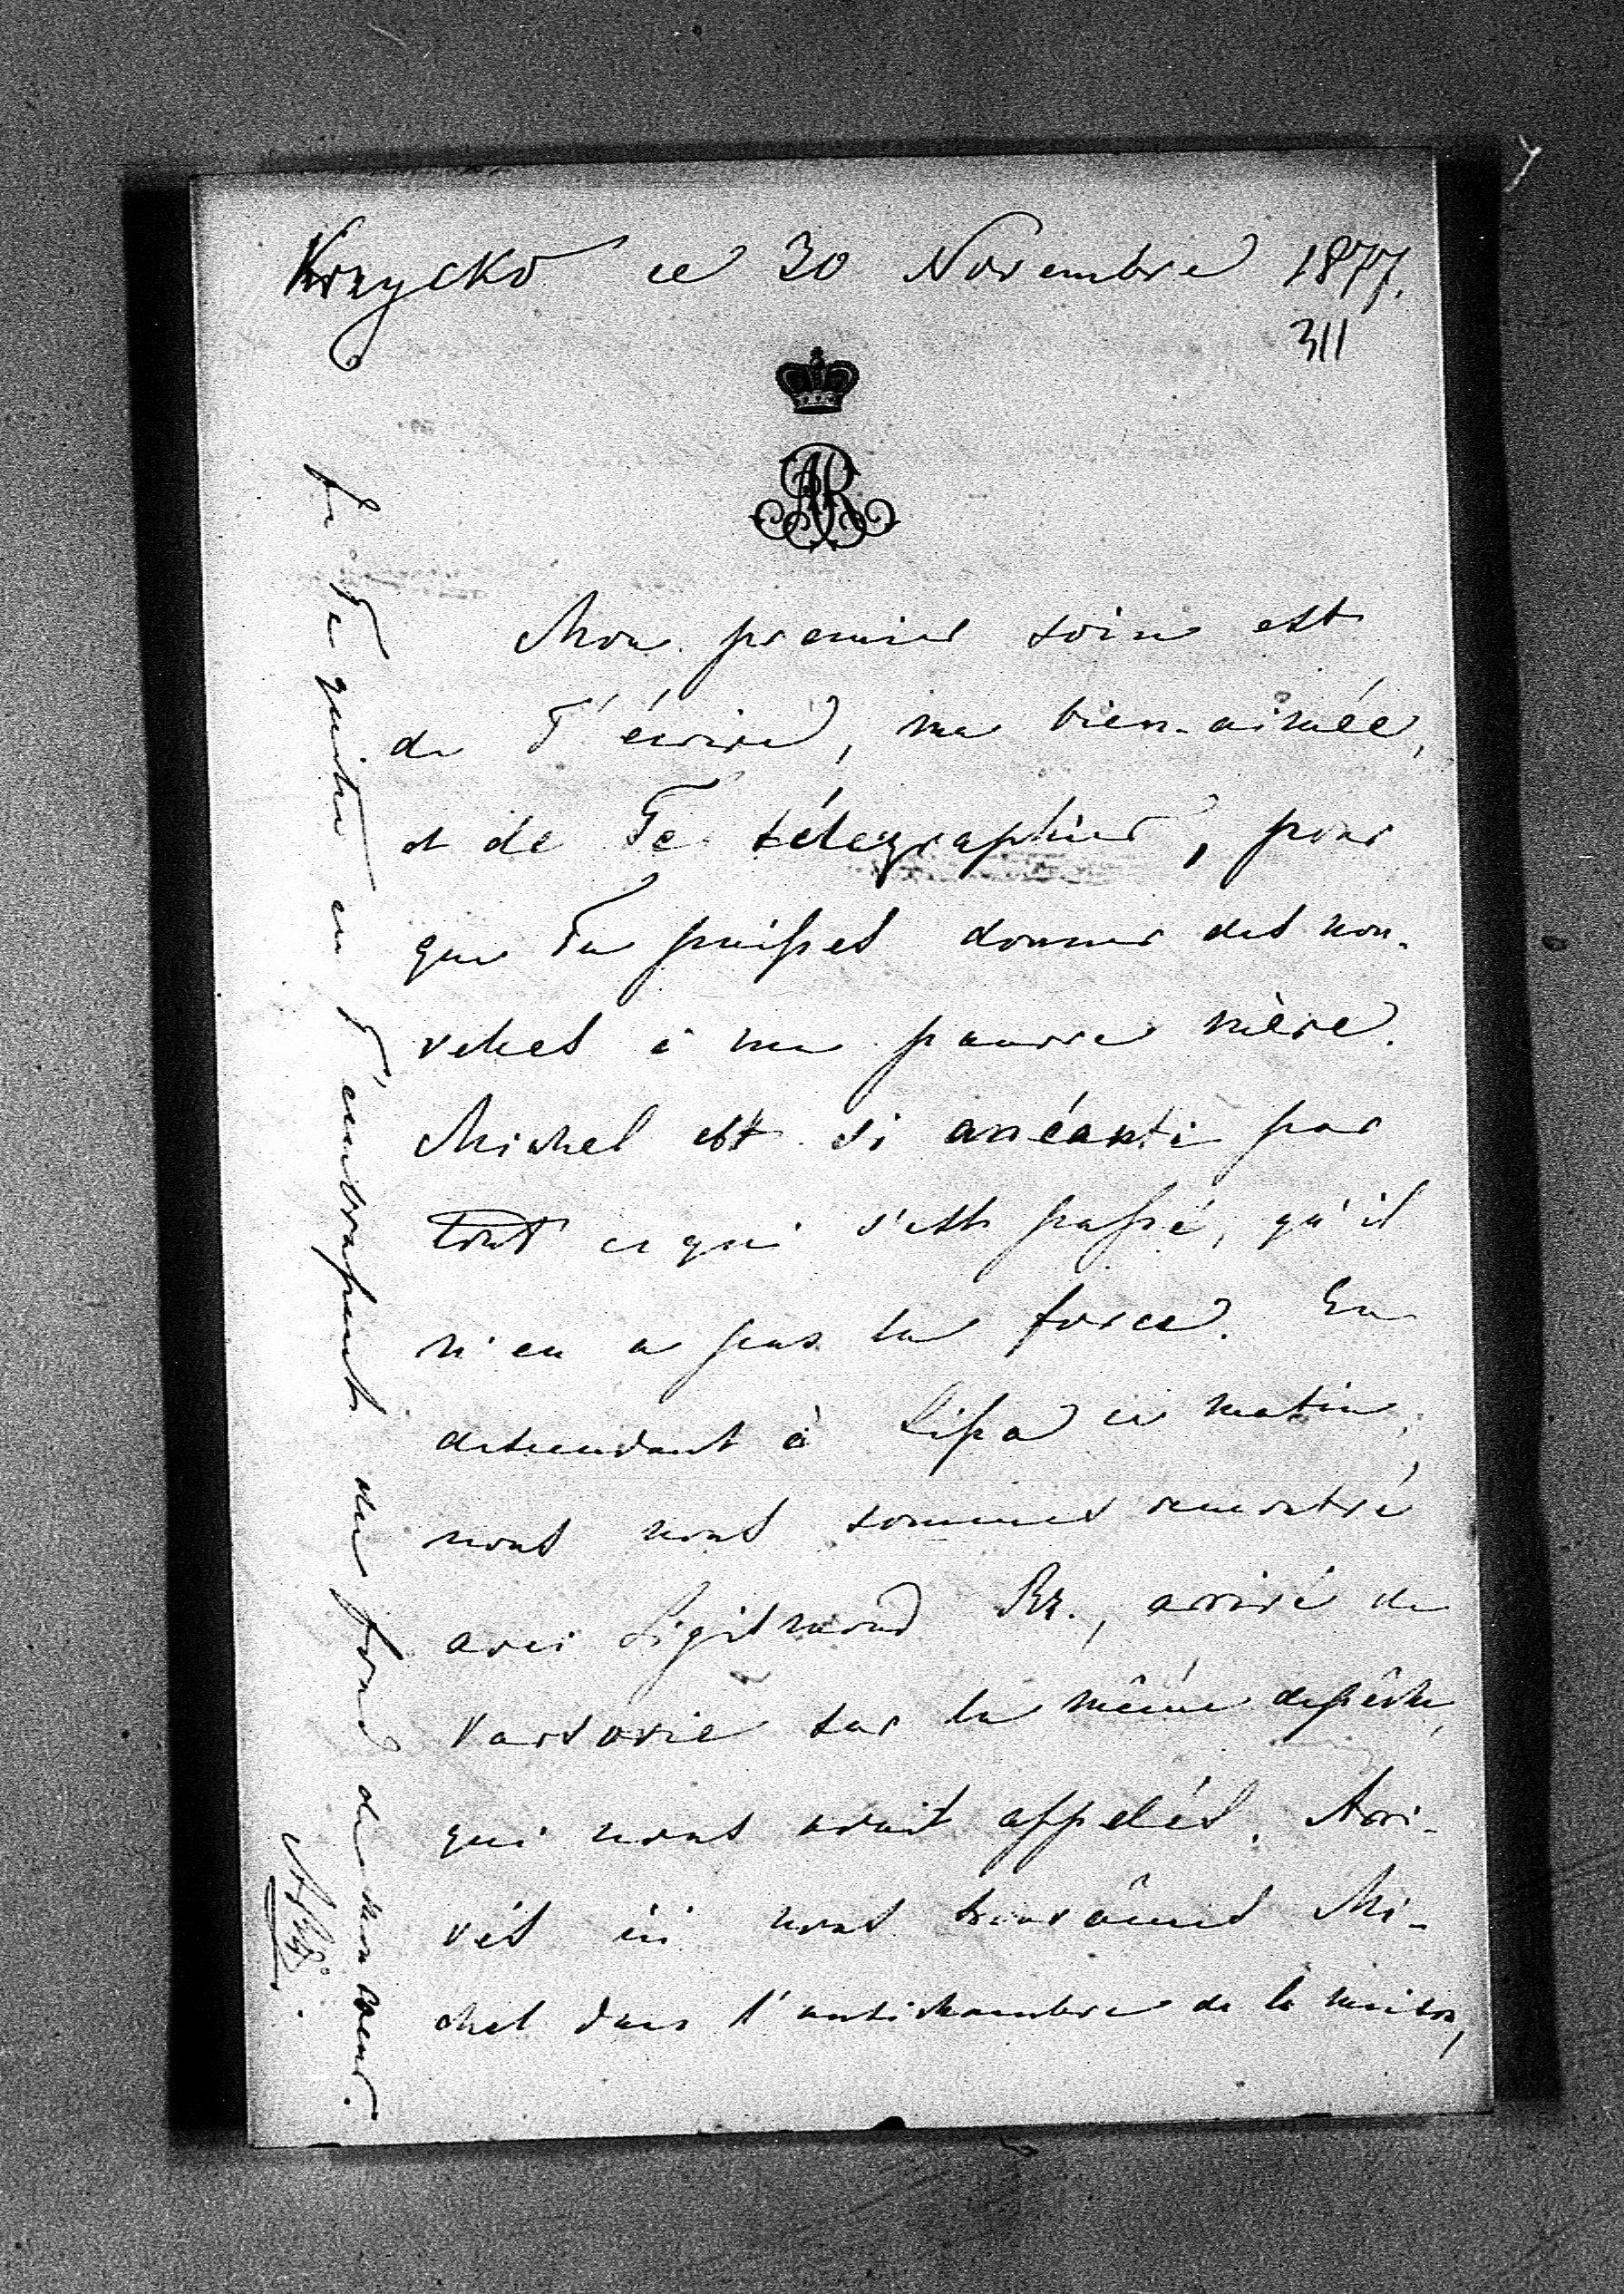 Krzycko ce 30 Novembre 1877.
311
AR
Mon premier soin est
de T'écrire, ma bien-aimée,
et de Te télégraphier, pour
que Tu puisses donner des nou-
velles à ma pauvre mère.
Michel est si anéanti par
tout ce qui s'est passé, qu'il
n'en a pas la force. En
descendant à Lissa ce matin,
nous nous sommes rencontré
avec Sigismond Rz., arrivé de
Varsovie sur la même dépêche,
qui nous avait appelés. Arri-
vés ici nous trouvâmes Mi-
chel dans l'antichambre de la maison,
Je Te quitte en T'embrassant du fond de mon coeur.